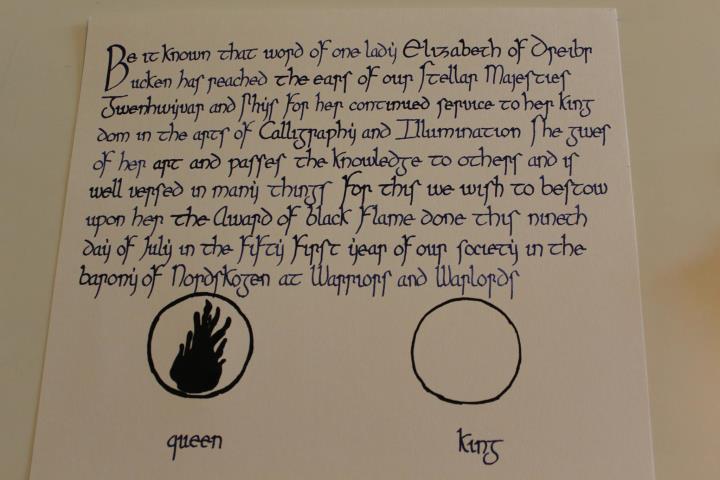 Be it known that word of one lady Elizabeth of Dreibr
ucken has reached the ears of our Stellar Majesties
Gwenhwyvar and Shys for her continued service to her king
dom in the arts of Calligraphy and Illumination She gives
of her art and passes the knowledge to others and is
well versed in many things for this we wish to bestow
upon her the Award of black flame done this nineth
day of July in the fifty first year of our society in the
barony of Nordskogen at Warriors and Warlords
queen
king